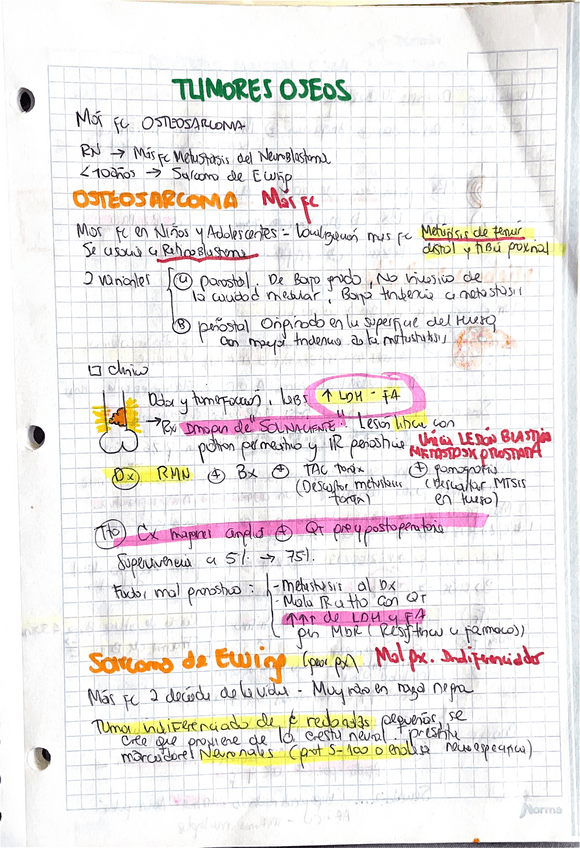 TUMORES OSEOS
Más fc OSTEOSARCOMA
RN → Más fc Metastasis del Neuroblastoma
<10años → Sarcoma de Ewing
OSTEOSARCOMA Más fc
Mas fc en Niños y Adolescentes = Localización mas fc Metáfisis de femur
distal y tibia proximal
Se asocia a Retinoblastoma
2 variables
parostal, De Bajo grado, No invasivo de
la cavidad medular, Baja tendencia a metastasis
(B) periostal Originado en la superficie del Hueso
con mayor tendencia a la metastasis
□ clínica
Dolor y tumefacción, LABS ↑ LDH - FA
→ Rx Imagen de "SOL NACIENTE" Lesión lítica con
patron permeativo y IR periostica Unica LESIÓN BLASTICA
METASTASIS PROSTATA
Dx RMN + Bx + TAC torax + gamagrafia
(Descartar metastasis (descartar MTSIS
torax) en hueso)
Tto Cx margenes amplios + QT pre y postoperatoria
Supervivencia a 5 → 75%.
Factor mal pronostico:
- Metastasis al Dx
- Mala R a tto con QT
↑↑↑ de LDH y FA
gen MDR (Resistencia a farmacos)
Sarcoma de Ewing (peor px) Mal px. Indiferenciado
Más fc 2 decada de la vida - Muy raro en raza negra
Tumor indiferenciado de ¢ redondas pequeñas, se
cree que proviene de la cresta neural. presenta
marcadores Neuronales (prot S-100 o enolasa neuroespecifica)
Norma